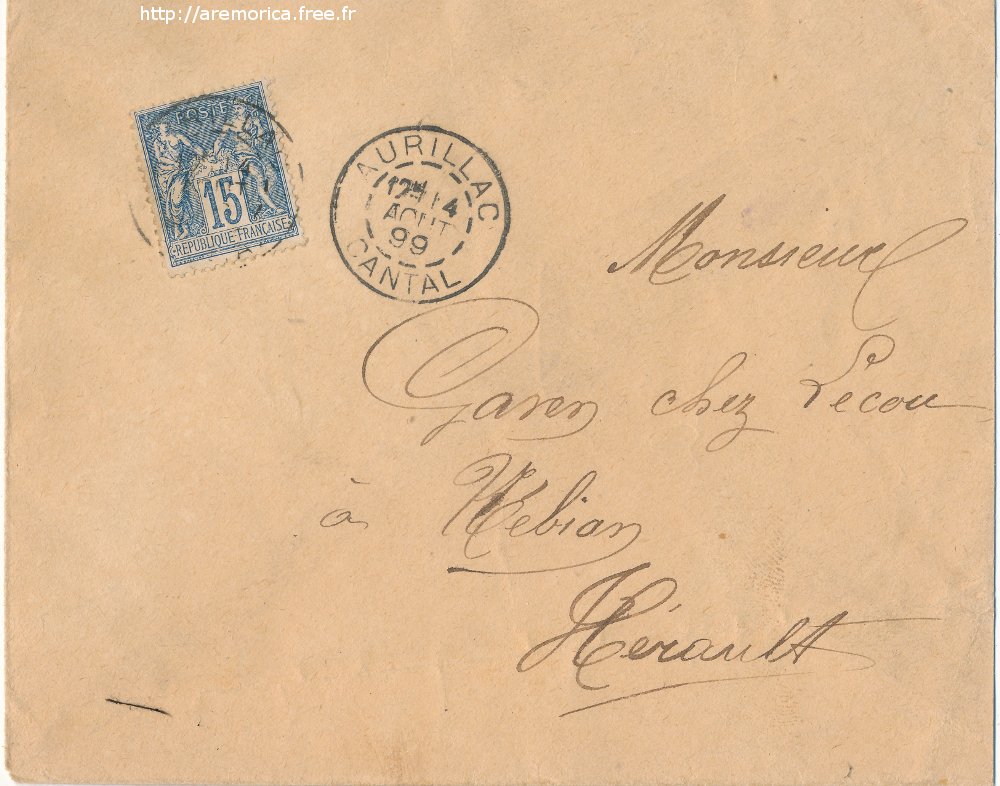 http://aremorica.free.fr
POSTES
15
REPUBLIQUE FRANÇAISE
AURILLAC
14
AOUT
99
CANTAL
Monsieur
Garen chez Lecou
à Nébian
Hérault